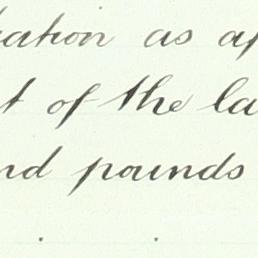 ation as ap
t of the la
nd pounds